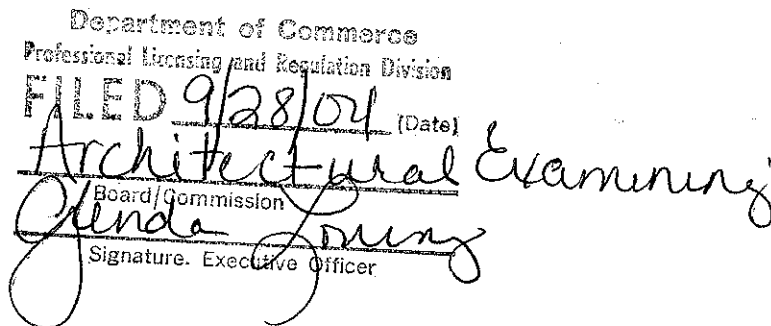 Department of Commerce
Professional Licensing and Regulation Division
FILED 9/28/04 (Date)
Architectural Examining
Board/Commission
Glenda Loving
Signature. Executive Officer